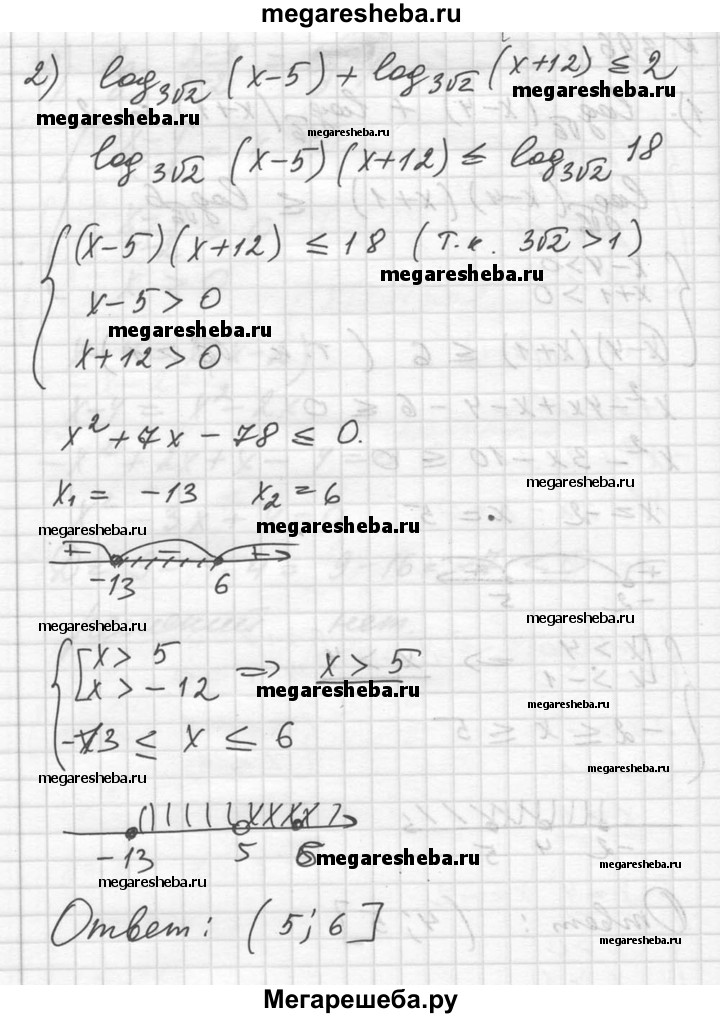 megaresheba.ru
2) log_{3√2} (x-5) + log_{3√2} (x+12) ≤ 2
megaresheba.ru
megaresheba.ru
megaresheba.ru
log_{3√2} (x-5)(x+12) ≤ log_{3√2} 18
(x-5)(x+12) ≤ 18 (т.к. 3√2 > 1)
megaresheba.ru
x-5 > 0
megaresheba.ru
x+12 > 0
x² + 7x - 78 ≤ 0.
x₁ = -13 x₂ = 6
megaresheba.ru
megaresheba.ru
megaresheba.ru
+ - +
-13 6
megaresheba.ru
megaresheba.ru
[x > 5
x > -12 => x > 5
megaresheba.ru
megaresheba.ru
-13 ≤ x ≤ 6
megaresheba.ru
megaresheba.ru
-13 5 6
megaresheba.ru
megaresheba.ru
Ответ: (5; 6]
megaresheba.ru
Мегарешеба.ру